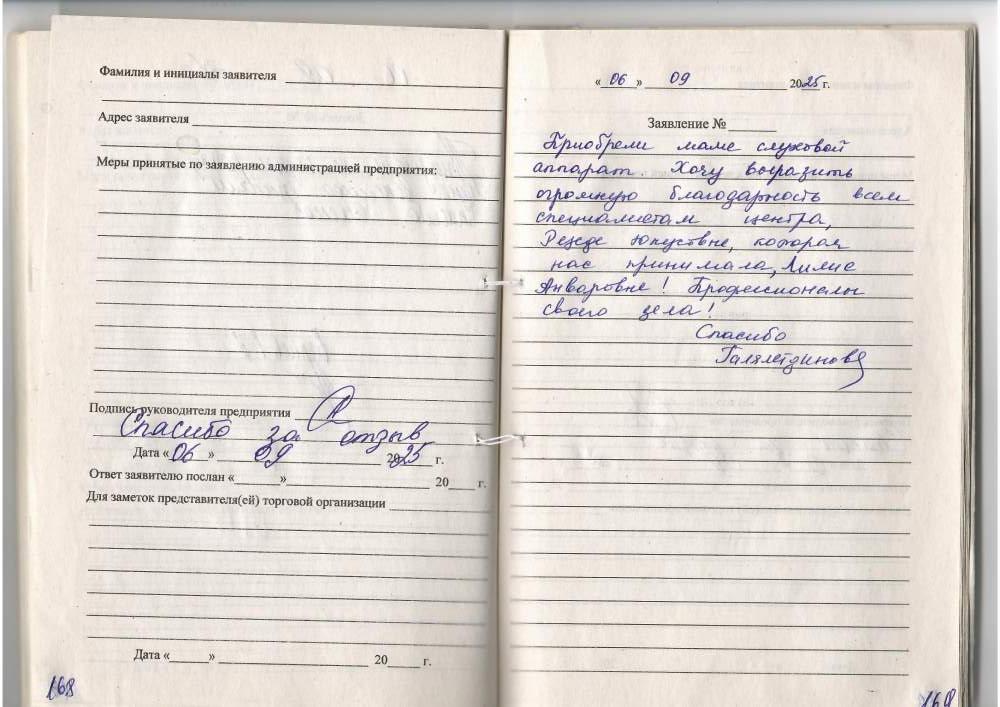 Фамилия и инициалы заявителя
Адрес заявителя
Меры принятые по заявлению администрацией предприятия:
Подпись руководителя предприятия
Спасибо за отзыв
Дата «06» 09 2025 г.
Ответ заявителю послан «______»____________ 20____ г.
Для заметок представителя(ей) торговой организации
Дата «______» ____________ 20____ г.
168
«06» 09 2025 г.
Заявление № ______
Приобрели маме слуховой
аппарат. Хочу выразить
огромную благодарность всем
специалистам центра,
которая
нас принимала, Лилие
Анваровне! Профессионалы
своего дела!
Спасибо
169